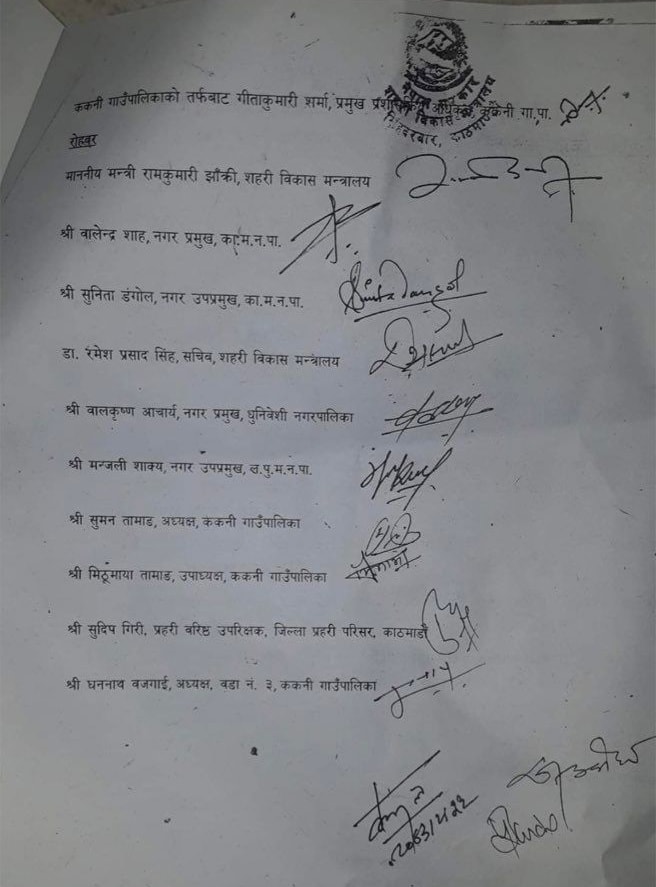 ककनी गाउँपालिकाको तर्फबाट गीताकुमारी शर्मा, प्रमुख प्रशासकीय अधिकृत, ककनी गा.पा.
सिंहदरबार, काठमाडौं
रोहवर
माननीय मन्त्री रामकुमारी झाँक्री, शहरी विकास मन्त्रालय
श्री वालेन्द्र शाह, नगर प्रमुख, का.म.न.पा.
श्री सुनिता डंगोल, नगर उपप्रमुख, का.म.न.पा. Sunita Dangol
डा. रमेश प्रसाद सिंह, सचिव, शहरी विकास मन्त्रालय
श्री वालकृष्ण आचार्य, नगर प्रमुख, धुनिवेशी नगरपालिका
श्री मन्जली शाक्य, नगर उपप्रमुख, ल.पु.म.न.पा.
श्री सुमन तामाङ, अध्यक्ष, ककनी गाउँपालिका
श्री मिठूमाया तामाङ, उपाध्यक्ष, ककनी गाउँपालिका
श्री सुदिप गिरी, प्रहरी वरिष्ठ उपरिक्षक, जिल्ला प्रहरी परिसर, काठमाडौं
श्री घननाथ वजगाई, अध्यक्ष, वडा नं. ३, ककनी गाउँपालिका